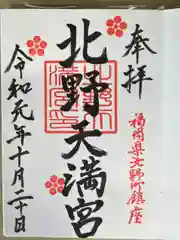 奉拝
福岡県北野町鎮座
北野天満宮
令和元年十月二十日